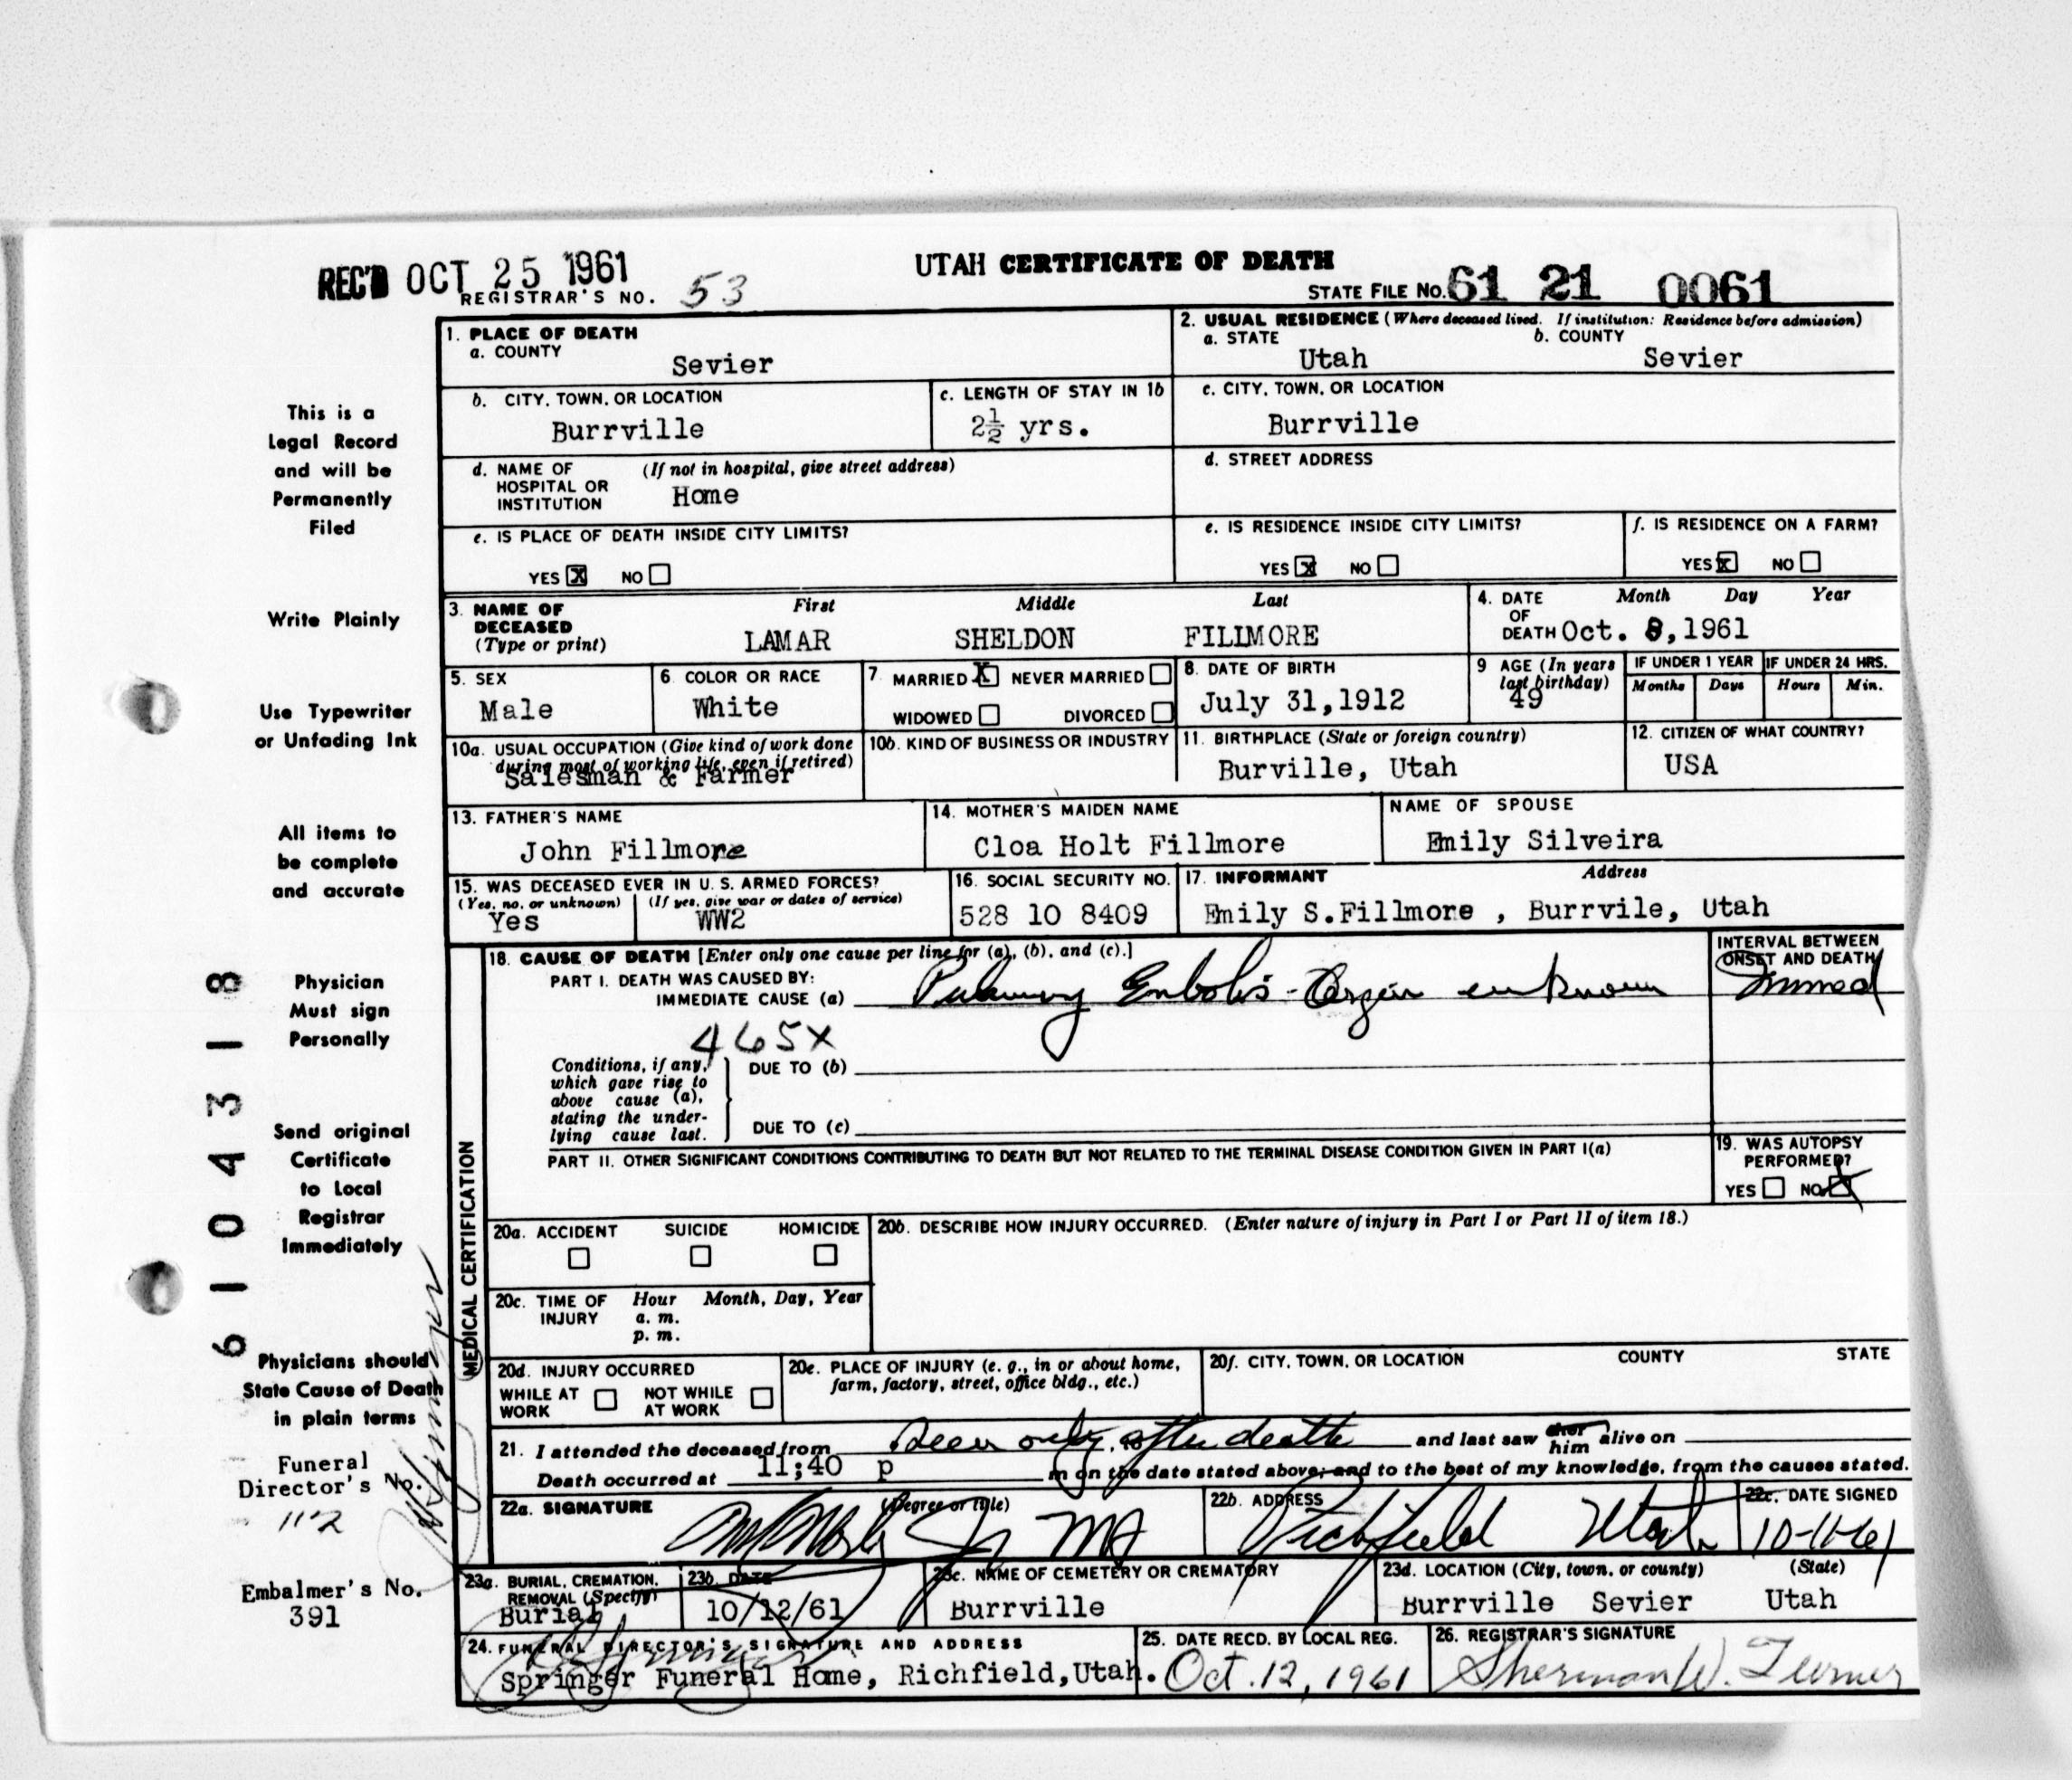 REC'D OCT 25 1961
UTAH CERTIFICATE OF DEATH
REGISTRAR'S NO. 53
STATE FILE No. 61 21 0061
This is a
Legal Record
and will be
Permanently
Filed
Write Plainly
Use Typewriter
or Unfading Ink
All items to
be complete
and accurate
Physician
Must sign
Personally
Send original
Certificate
to Local
Registrar
Immediately
Physicians should
State Cause of Death
in plain terms
Funeral
Director's No.
112
Embalmer's No.
391
61 04318
1. PLACE OF DEATH
a. COUNTY
Sevier
2. USUAL RESIDENCE (Where deceased lived. If institution: Residence before admission)
a. STATE b. COUNTY
Utah Sevier
b. CITY, TOWN, OR LOCATION
Burrville
c. LENGTH OF STAY IN 1b
2½ yrs.
c. CITY, TOWN, OR LOCATION
Burrville
d. NAME OF (If not in hospital, give street address)
HOSPITAL OR
INSTITUTION Home
d. STREET ADDRESS
e. IS PLACE OF DEATH INSIDE CITY LIMITS?
YES X NO
e. IS RESIDENCE INSIDE CITY LIMITS?
YES X NO
f. IS RESIDENCE ON A FARM?
YES X NO
3. NAME OF
DECEASED
(Type or print)
First Middle Last
LAMAR SHELDON FILLMORE
4. DATE Month Day Year
OF
DEATH Oct. 8,1961
5. SEX
Male
6. COLOR OR RACE
White
7. MARRIED X NEVER MARRIED
WIDOWED DIVORCED
8. DATE OF BIRTH
July 31,1912
9 AGE (In years
last birthday)
49
IF UNDER 1 YEAR IF UNDER 24 HRS.
Months Days Hours Min.
10a. USUAL OCCUPATION (Give kind of work done
during most of working life, even if retired)
Salesman & Farmer
10b. KIND OF BUSINESS OR INDUSTRY
11. BIRTHPLACE (State or foreign country)
Burville, Utah
12. CITIZEN OF WHAT COUNTRY?
USA
13. FATHER'S NAME
John Fillmore
14. MOTHER'S MAIDEN NAME
Cloa Holt Fillmore
NAME OF SPOUSE
Emily Silveira
15. WAS DECEASED EVER IN U. S. ARMED FORCES?
(Yes, no, or unknown) (If yes, give war or dates of service)
Yes WW2
16. SOCIAL SECURITY NO.
528 10 8409
17. INFORMANT Address
Emily S.Fillmore , Burrvile, Utah
MEDICAL CERTIFICATION
18. CAUSE OF DEATH [Enter only one cause per line for (a), (b), and (c).]
PART I. DEATH WAS CAUSED BY:
IMMEDIATE CAUSE (a) Pulmonary Embolis - Orgin unknown
INTERVAL BETWEEN
ONSET AND DEATH
Immed
465X
Conditions, if any,
which gave rise to
above cause (a),
stating the under-
lying cause last.
DUE TO (b)
DUE TO (c)
PART II. OTHER SIGNIFICANT CONDITIONS CONTRIBUTING TO DEATH BUT NOT RELATED TO THE TERMINAL DISEASE CONDITION GIVEN IN PART I(a)
19. WAS AUTOPSY
PERFORMED?
YES NO X
20a. ACCIDENT SUICIDE HOMICIDE
20b. DESCRIBE HOW INJURY OCCURRED. (Enter nature of injury in Part I or Part II of item 18.)
20c. TIME OF Hour Month, Day, Year
INJURY a. m.
p. m.
20d. INJURY OCCURRED
WHILE AT NOT WHILE
WORK AT WORK
20e. PLACE OF INJURY (e. g., in or about home,
farm, factory, street, office bldg., etc.)
20f. CITY, TOWN, OR LOCATION COUNTY STATE
21. I attended the deceased from Seen only after death and last saw her him alive on
Death occurred at 11;40 p m on the date stated above; and to the best of my knowledge, from the causes stated.
22a. SIGNATURE (Degree or title)
Jr MD
22b. ADDRESS
Richfield Utah
22c. DATE SIGNED
10-11-61
23a. BURIAL, CREMATION,
REMOVAL (Specify)
Burial
23b. DATE
10/12/61
23c. NAME OF CEMETERY OR CREMATORY
Burrville
23d. LOCATION (City, town, or county) (State)
Burrville Sevier Utah
24. FUNERAL DIRECTOR'S SIGNATURE AND ADDRESS
Springer Funeral Home, Richfield,Utah.
25. DATE RECD. BY LOCAL REG.
Oct. 12, 1961
26. REGISTRAR'S SIGNATURE
Sherman W. Turner